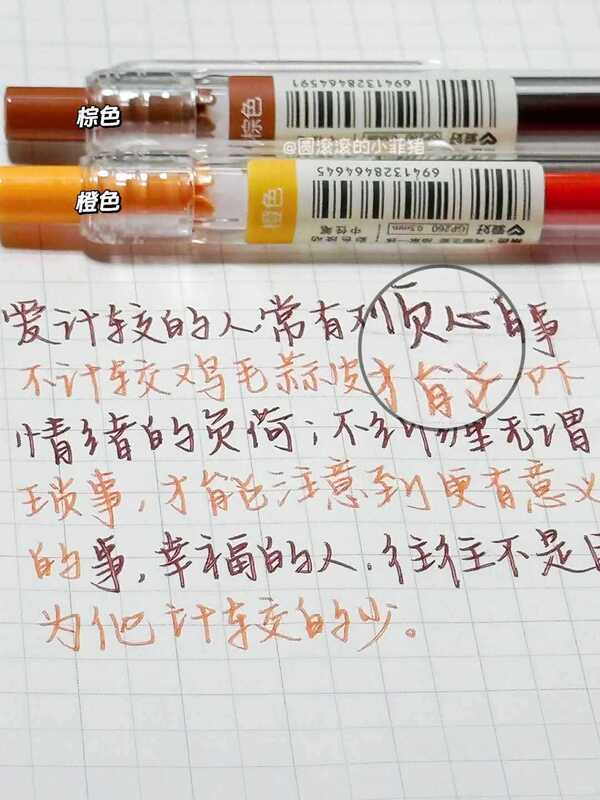 棕色
棕色
6941328464591
@圆滚滚的小菲猪
橙色
橙色
6941328464645
爱好
GP260 0.5mm
中性笔
爱计较的人,常有 心 事
不计较鸡毛蒜皮才
情绪的负荷;不 无谓
琐事,才能注意到更有意义
的事,幸福的人.往往不是
为他计较的少。